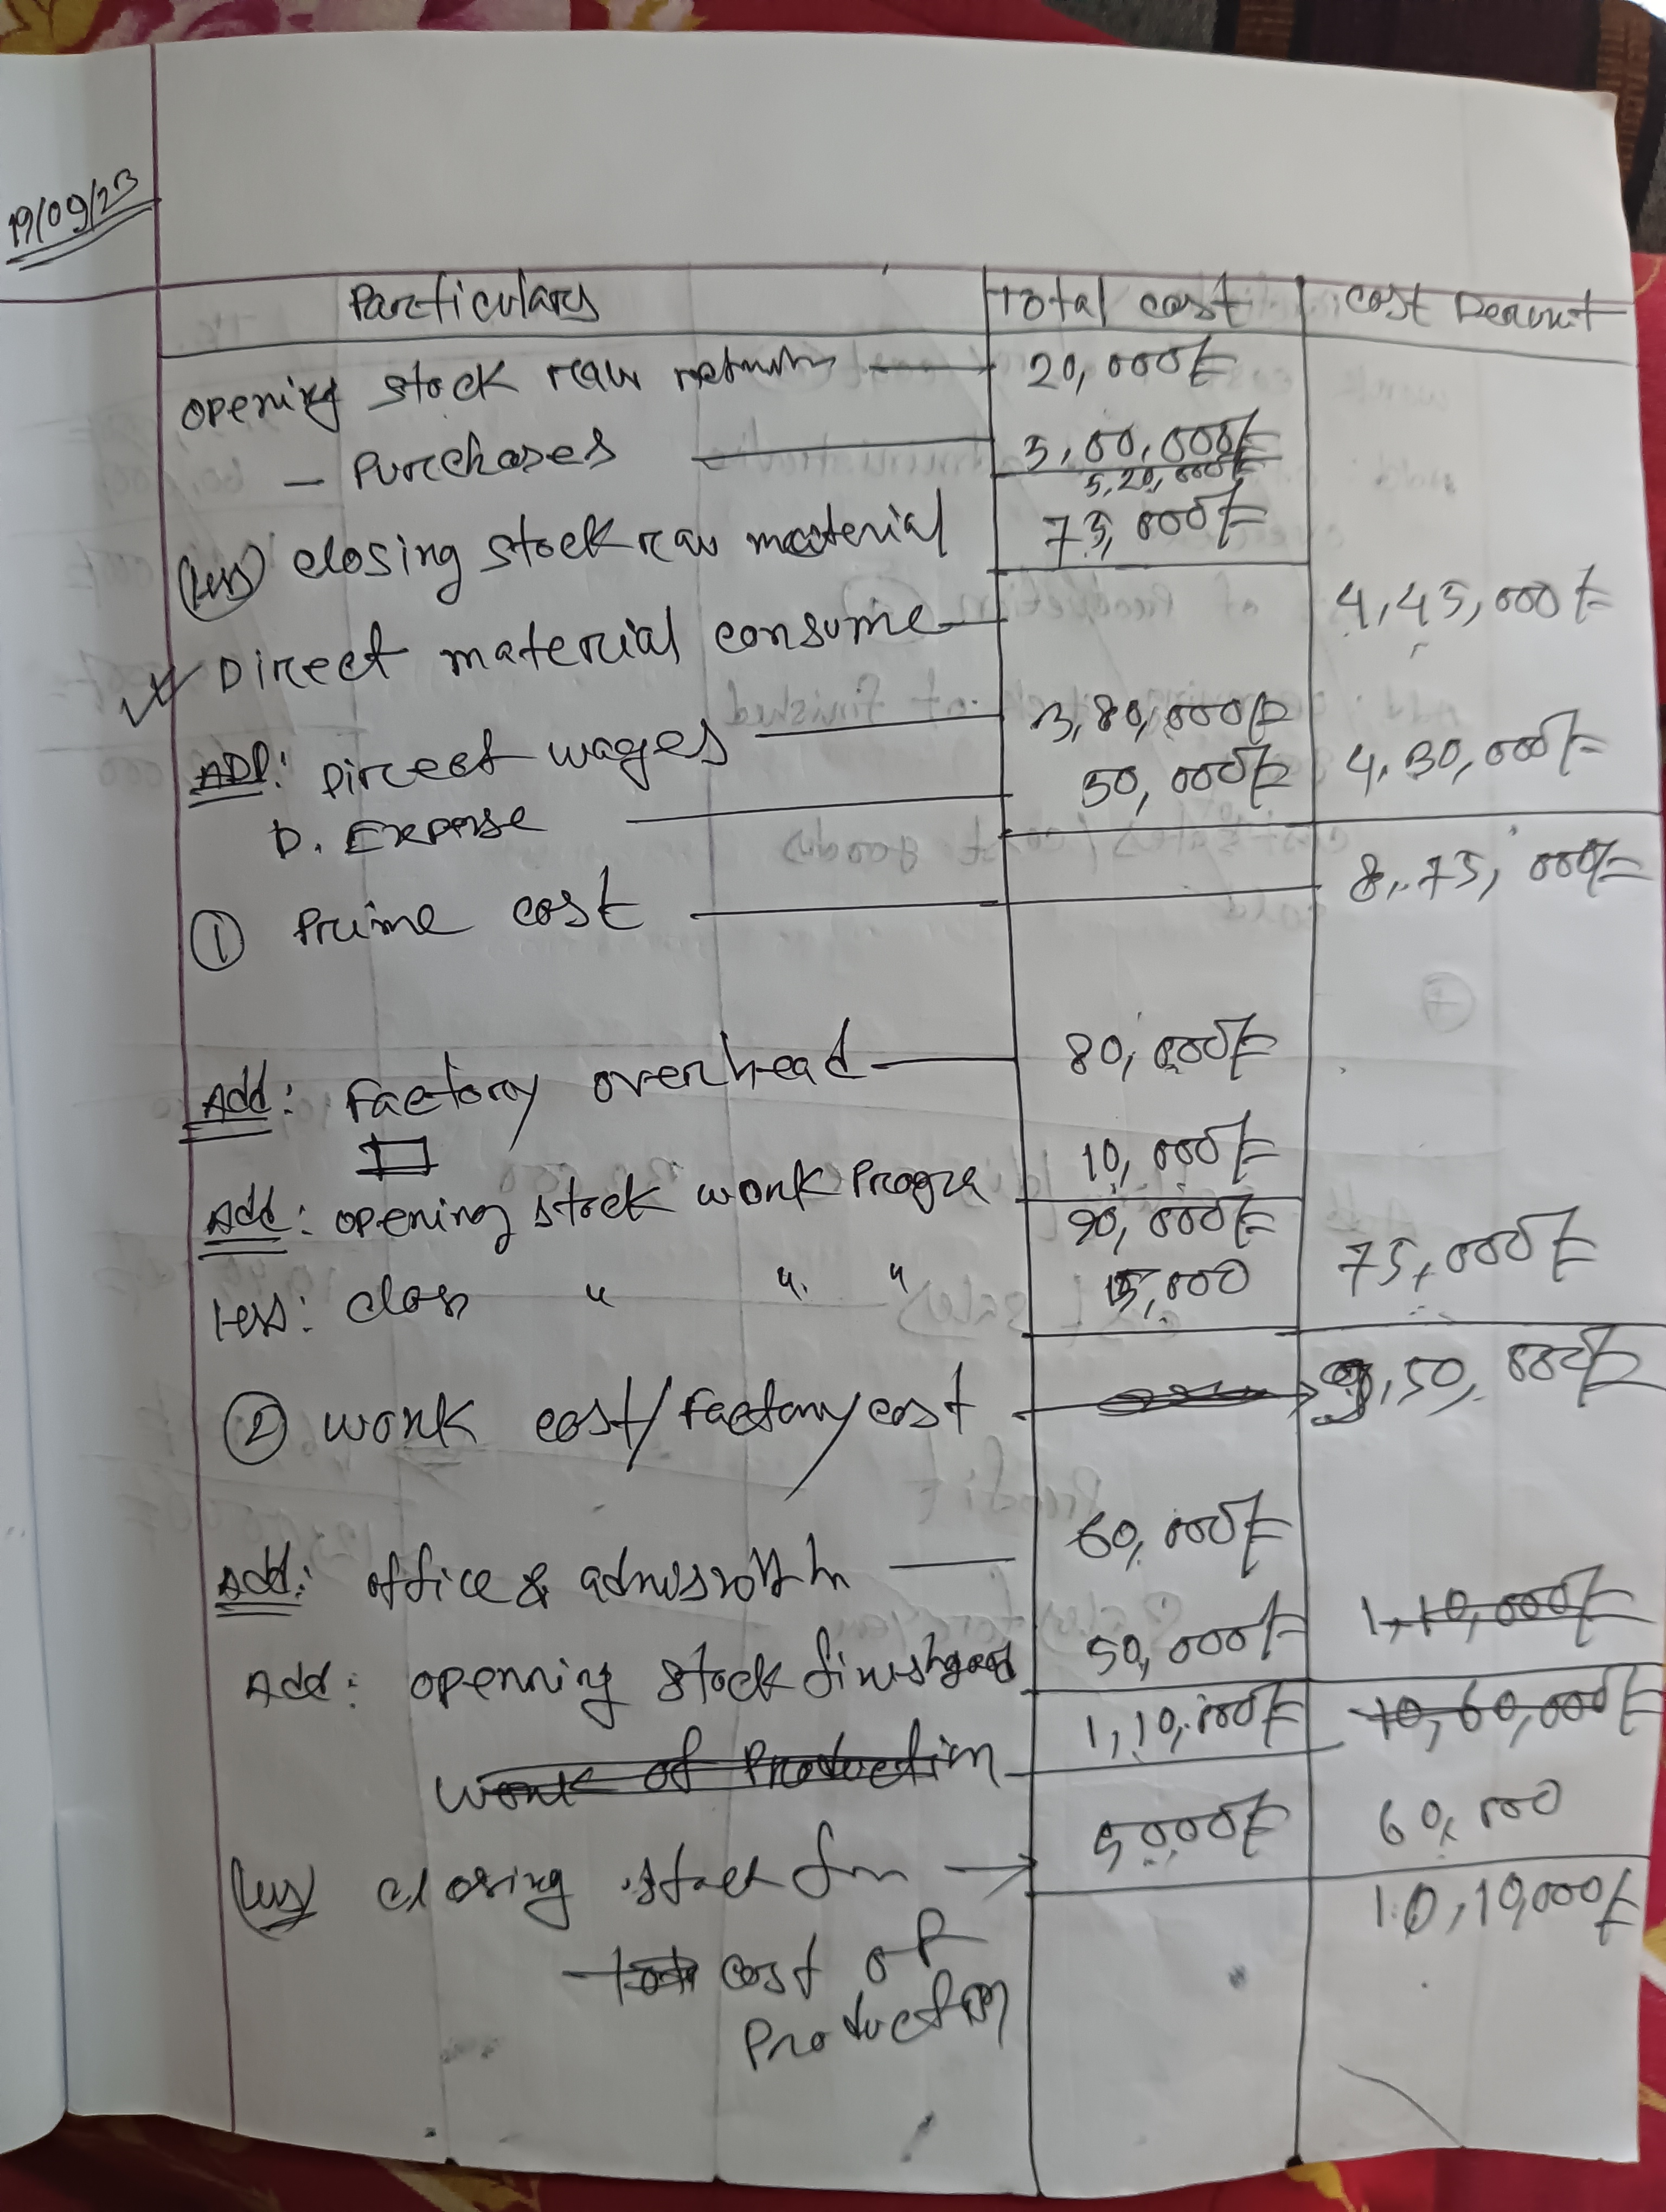 19/09/23
Particulars Total cost cost Per unit
opening stock raw 20,000/=
- Purchases 5,00,000/=
5,20,000/=
(Less) closing stock raw material 75,000/=
Direct material consume 4,45,000/=
ADD: Direct wages 3,80,000/=
D. Expense 50,000/= 4,30,000/=
① Prime cost 8,75,000/=
Add: Factory overhead 80,000/=
Add: opening stock work Progre 10,000/=
90,000/=
Less: Clos " " " 15,000 75,000/=
② work cost/factory cost 9,50,000/=
Add: office & 60,000/=
1,10,000/=
Add: openning stock finishgood 50,000/=
work of Production 1,10,000/= 10,60,000/=
(Less) closing stock 50,000/= 60,000
10,10,000/=
cost of
Production